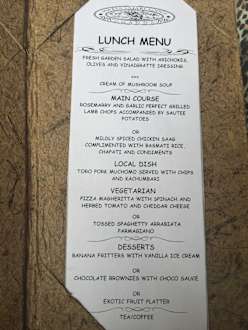 LUNCH MENU
FRESH GARDEN SALAD WITH ARICHOKES,
OLIVES AND VINAIGRATTE DRESSING
***
CREAM OF MUSHROOM SOUP
MAIN COURSE
ROSEMARRY AND GARLIC PERFECT GRILLED
LAMB CHOPS ACCOMPANIED BY SAUTEE
POTATOES
OR
MILDLY SPICED CHICKEN SAAG
COMPLIMENTED WITH BASMATI RICE,
CHAPATI AND CONDIMENTS
LOCAL DISH
TORO PORK MUCHOMO SERVED WITH CHIPS
AND KACHUMBARI
VEGETARIAN
PIZZA MAGHERITTA WITH SPINACH AND
HERBED TOMATO AND CHEDDAR CHEESE
OR
TOSSED SPAGHETTY ARRABIATA
PARMAGIANO
DESSERTS
BANANA FRITTERS WITH VANILLA ICE CREAM
OR
CHOCOLATE BROWNIES WITH CHOCO SAUCE
OR
EXOTIC FRUIT PLATTER
TEA/COFFEE